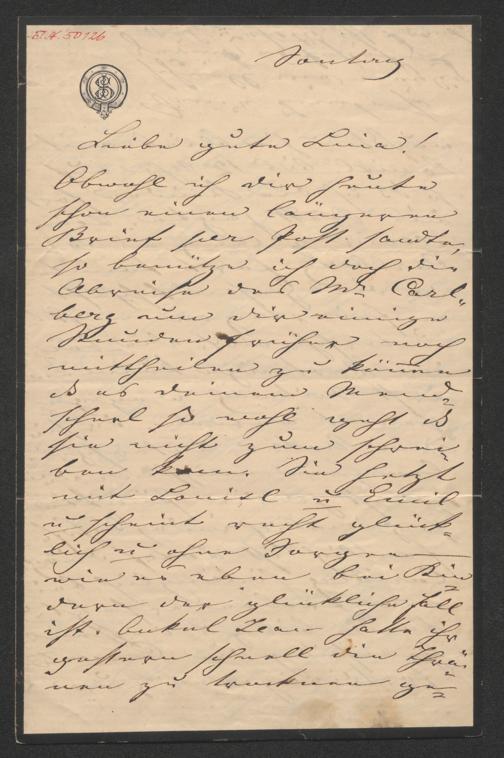 Sontag
Liebe gute Luia!
Obwohl ich dir heute
schon einen längeren
Brief per Post sandte,
so benütze ich doch die
Abreise des Mr Carl-
berg um dir einige
Stunden früher noch
mittheilen zu können
daß es deinem
so wohl geht daß
sie nicht zum schrei-
ben kam. Sie
mit Louise u Emil
u scheint recht glück-
lich u ohne Sorgen
wie es eben bei Kin
dern der glückliche Fall
ist. Onkel Jean hatte ihr
gestern schnell die Thrä-
nen zu trocknen ge-